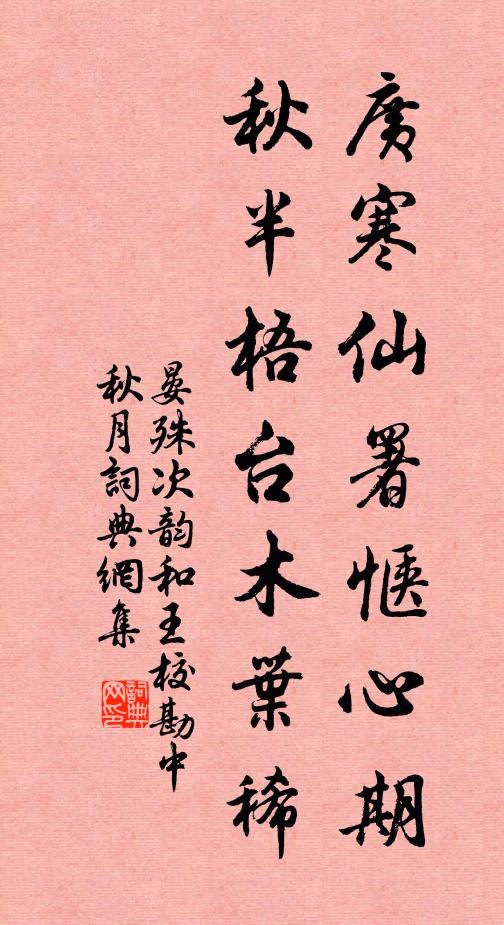 廣寒仙署愜心期
秋半梧台木葉稀
晏殊次韵和王校勘中
秋月詞典網集
詞典网印